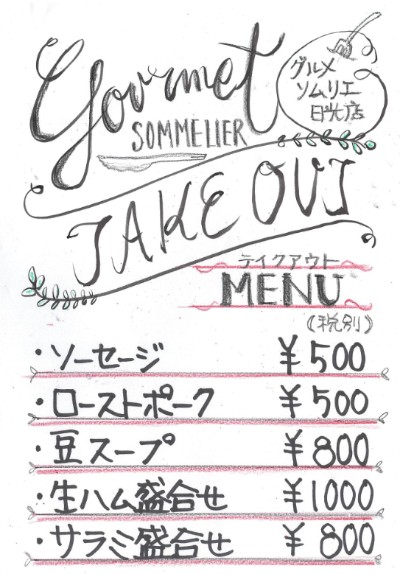 Gourmet
SOMMELIER
グルメ
ソムリエ
日光店
TAKE OUT
テイクアウト
MENU
(税別)
・ソーセージ ¥500
・ローストポーク ¥500
・豆スープ ¥800
・生ハム盛合せ ¥1000
・サラミ盛合せ ¥800